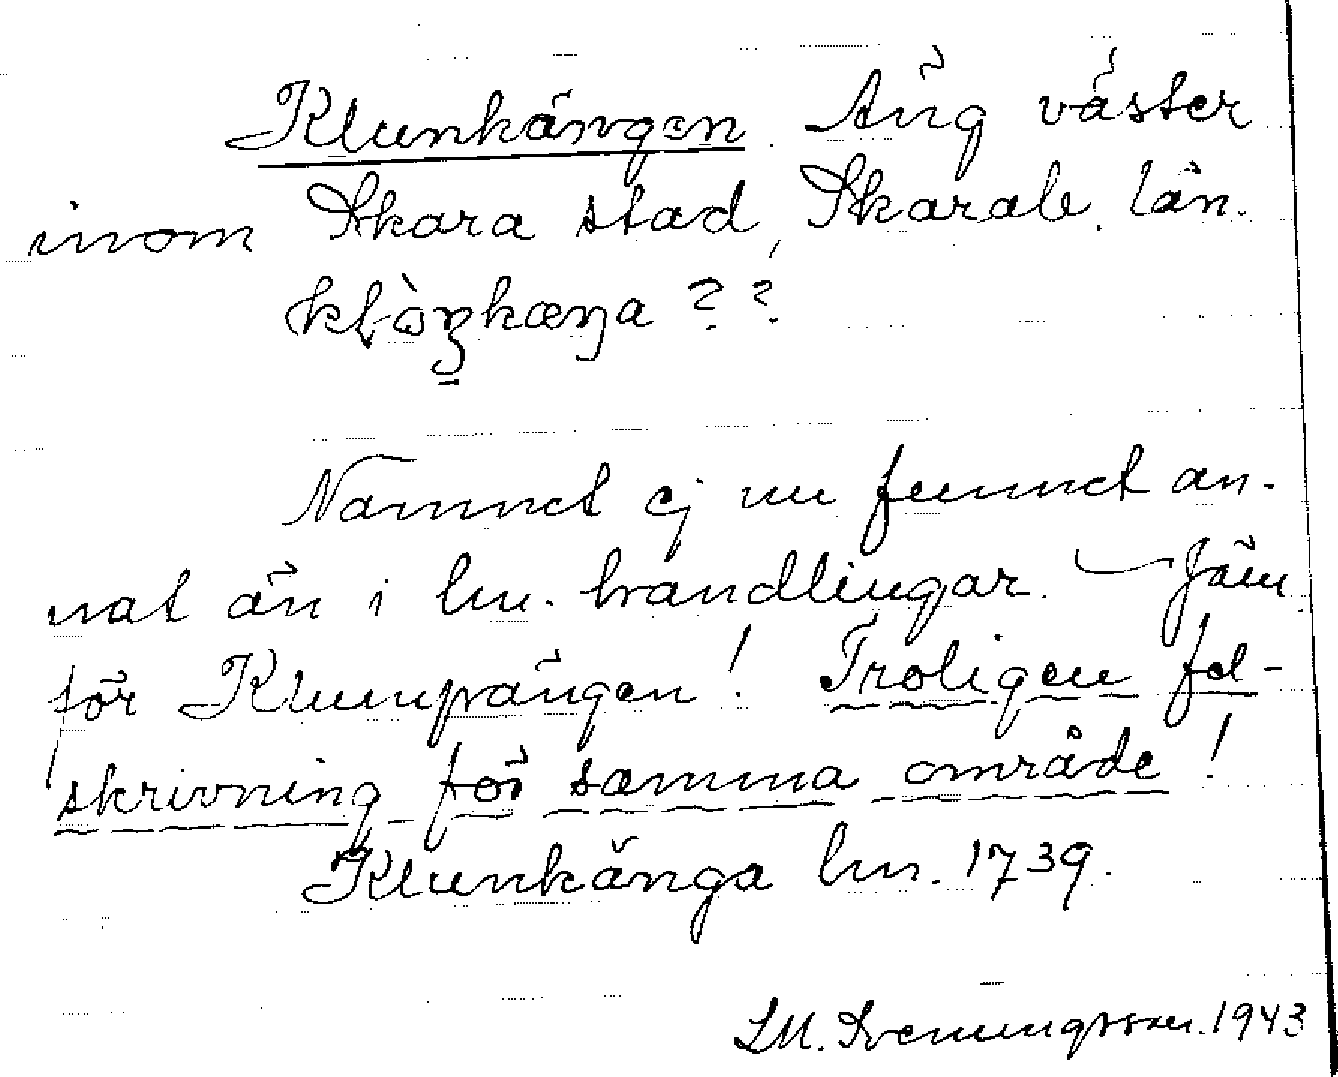 Klunkängen Äng väster
inom Skara stad, Skarab. län.
klò̩ŋkæŋa ??
Namnet ej nu funnet an-
nat än i lm. handlingar. – Jäm
för Klumpängen! Troligen fel-
skrivning för samma område!
Klunkänga lm. 1739.
S.M. Svenungsson. 1943